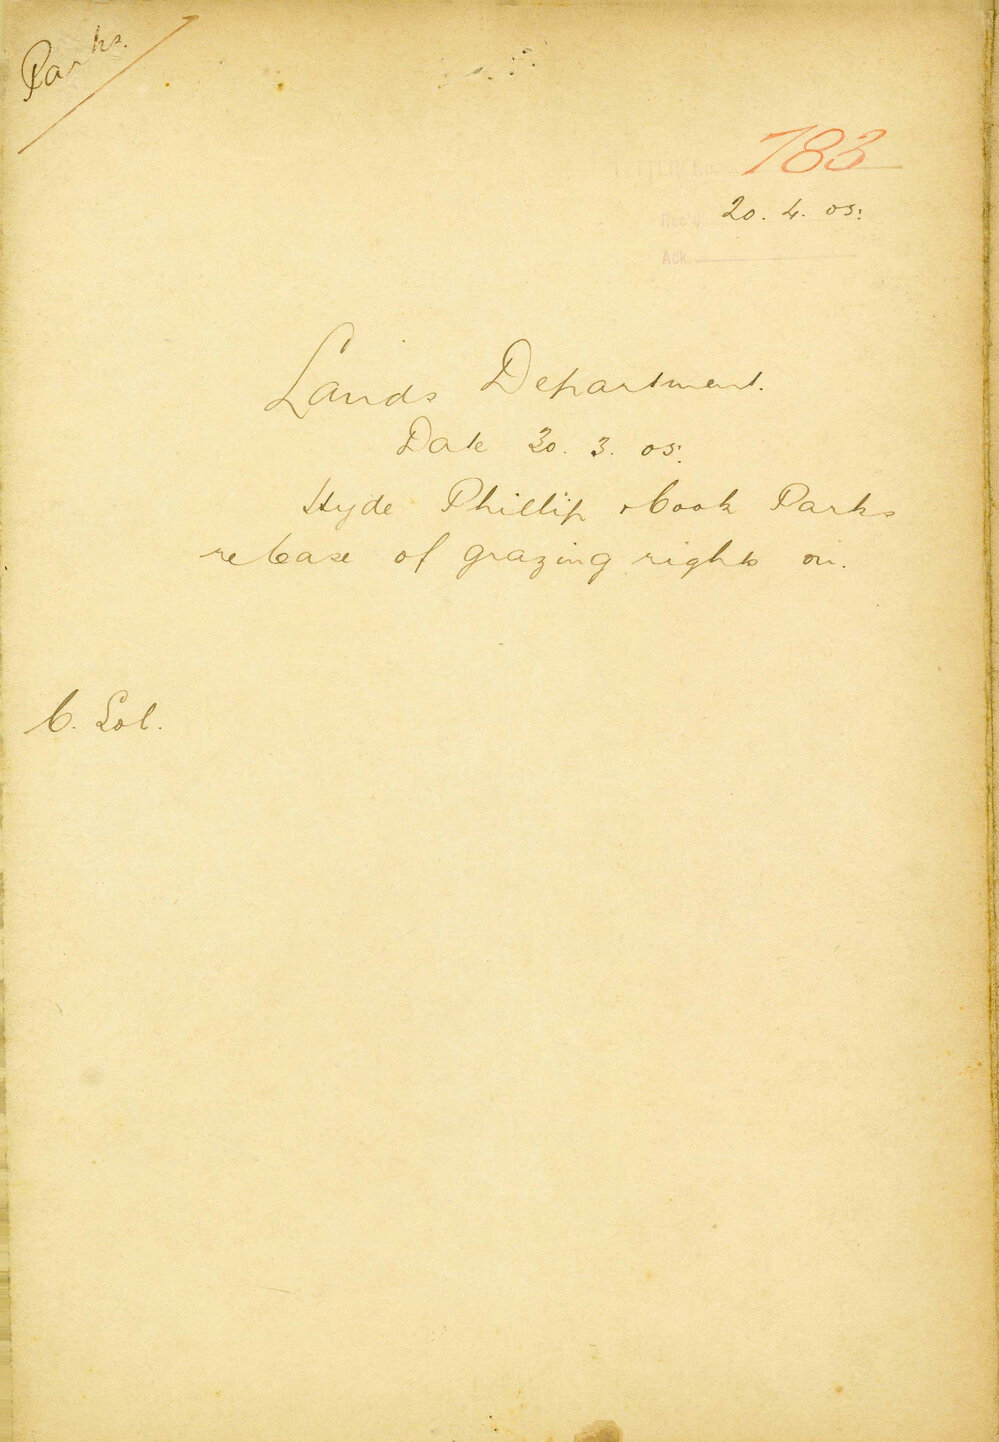 Parks.
LETTER No. 783
Rec'd 20. 4. 05.
Ack.
Lands Department.
Date 30. 3. 05.
Hyde Phillip & Cook Parks
re lease of grazing rights on.
C. Sol.